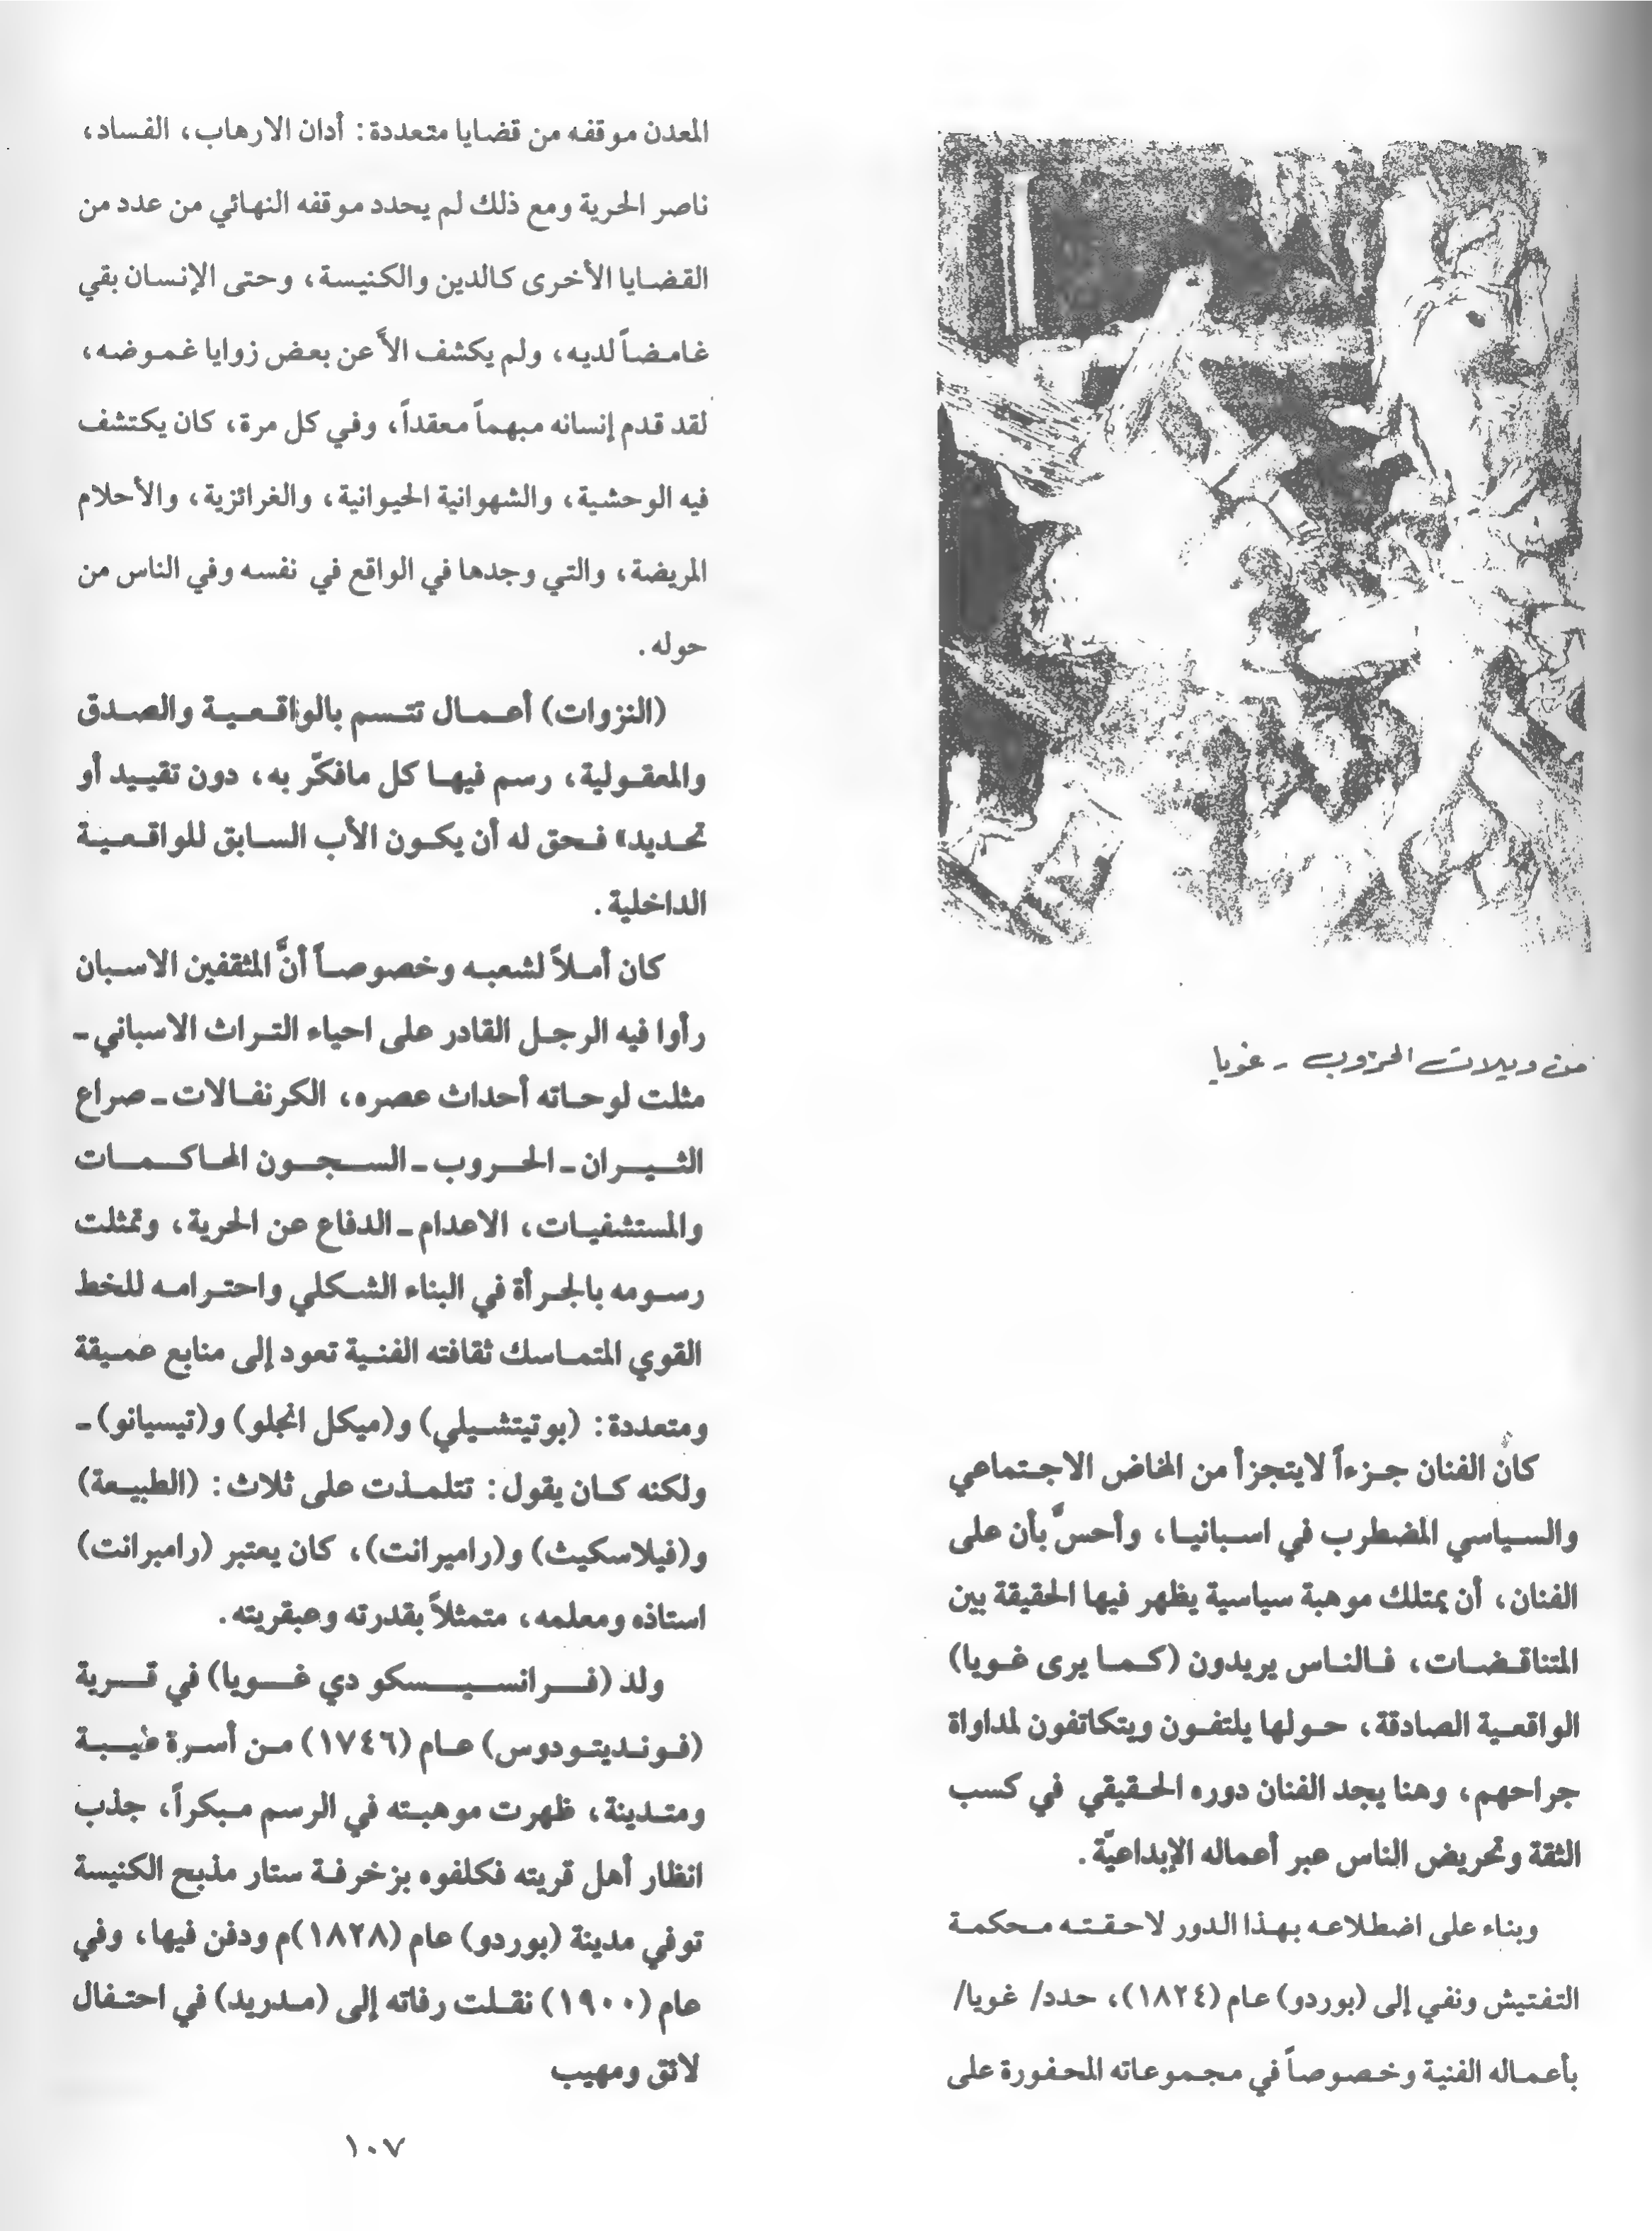 من ويلات الحروب - غويا
كان الفنان جزءاً لايتجزأ من المخاض الاجتماعي
والسياسي المضطرب في اسبانيا، وأحسَّ بأن على
الفنان، أن يمتلك موهبة سياسية يظهر فيها الحقيقة بين
المتناقضات، فالناس يريدون (كما يرى غويا)
الواقعية الصادقة، حولها يلتفون ويتكاتفون لمداواة
جراحهم، وهنا يجد الفنان دوره الحقيقي في كسب
الثقة وتحريض الناس عبر أعماله الإبداعيّة.
وبناء على اضطلاعه بهذا الدور لاحقته محكمة
التفتيش ونفي إلى (بوردو) عام (١٨٢٤)، حدد/ غويا/
بأعماله الفنية وخصوصاً في مجموعاته المحفورة على
المعدن موقفه من قضايا متعددة: أدان الارهاب، الفساد،
ناصر الحرية ومع ذلك لم يحدد موقفه النهائي من عدد من
القضايا الأخرى كالدين والكنيسة، وحتى الإنسان بقي
غامضاً لديه، ولم يكشف الاَّ عن بعض زوايا غموضه،
لقد قدم إنسانه مبهماً معقداً، وفي كل مرة، كان يكتشف
فيه الوحشية، والشهوانية الحيوانية، والغرائزية، والأحلام
المريضة، والتي وجدها في الواقع في نفسه وفي الناس من
حوله.
(النزوات) أعمال تتسم بالواقعية والصدق
والمعقولية، رسم فيها كل مافكّر به، دون تقييد أو
تحديد» فحق له أن يكون الأب السابق للواقعية
الداخلية.
كان أملاً لشعبه وخصوصاً أنَّ المثقفين الاسبان
رأوا فيه الرجل القادر على احياء التراث الاسباني ـ
مثلت لوحاته أحداث عصره، الكرنفالات ـ صراع
الثيران ـ الحروب ـ السجون المحاكمات
والمستشفيات، الاعدام ـ الدفاع عن الحرية، وتمثلت
رسومه بالجرأة في البناء الشكلي واحترامه للخط
القوي المتماسك ثقافته الفنية تعود إلى منابع عميقة
ومتعددة: (بوتيتشيلي) و(ميكل انجلو) و(تيسيانو) ـ
ولكنه كان يقول: تتلمذت على ثلاث: (الطبيعة)
و(فيلاسكيث) و(راميرانت)، كان يعتبر (رامبرانت)
استاذه ومعلمه، متمثلاً بقدرته وعبقريته.
ولد (فرانسيسكو دي غويا) في قرية
(فونديتودوس) عام (١٧٤٦) من أسرة طيبة
ومتدينة، ظهرت موهبته في الرسم مبكراً، جذب
انظار أهل قريته فكلفوه بزخرفة ستار مذبح الكنيسة
توفي مدينة (بوردو) عام (١٨٢٨)م ودفن فيها، وفي
عام (١٩٠٠) نقلت رفاته إلى (مدريد) في احتفال
لائق ومهيب
١٠٧